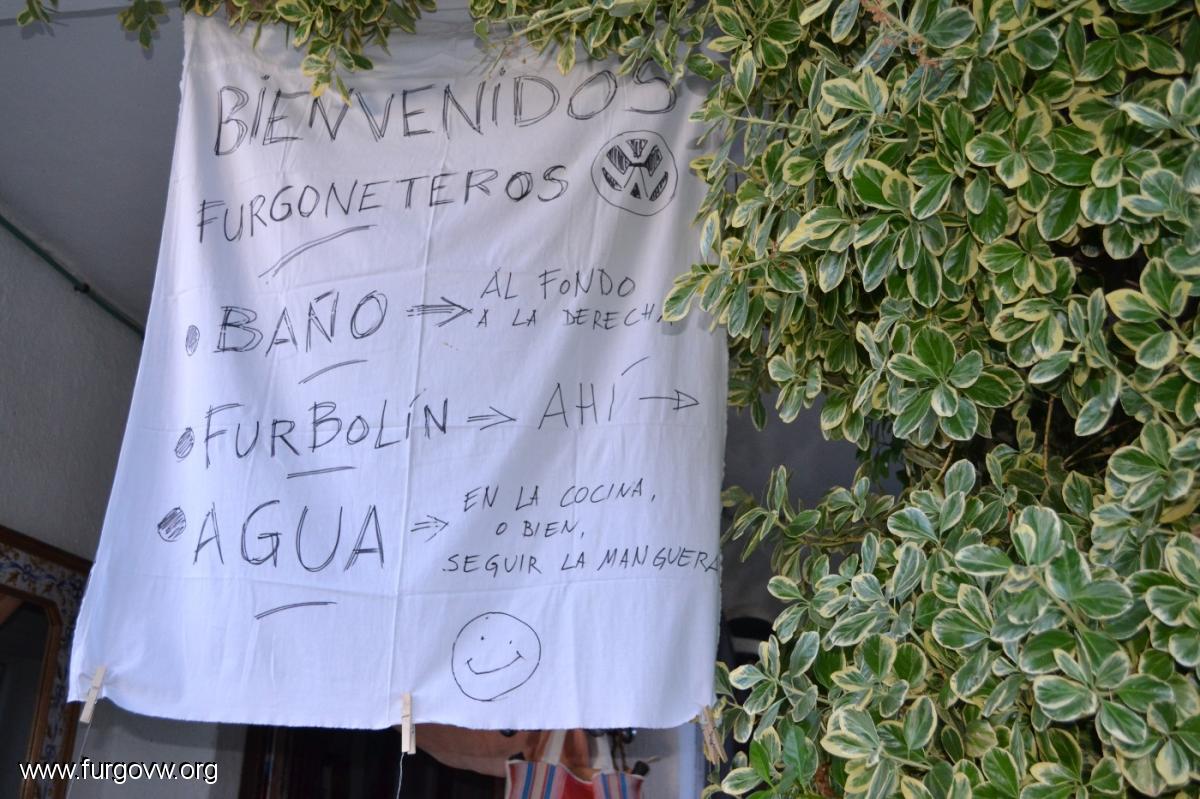 BIENVENIDOS
FURGONETEROS
BAÑO ⇒ AL FONDO
A LA DERECHA
FURBOLÍN ⇒ AHÍ →
AGUA ⇒ EN LA COCINA,
O BIEN,
SEGUIR LA MANGUERA
www.furgovw.org